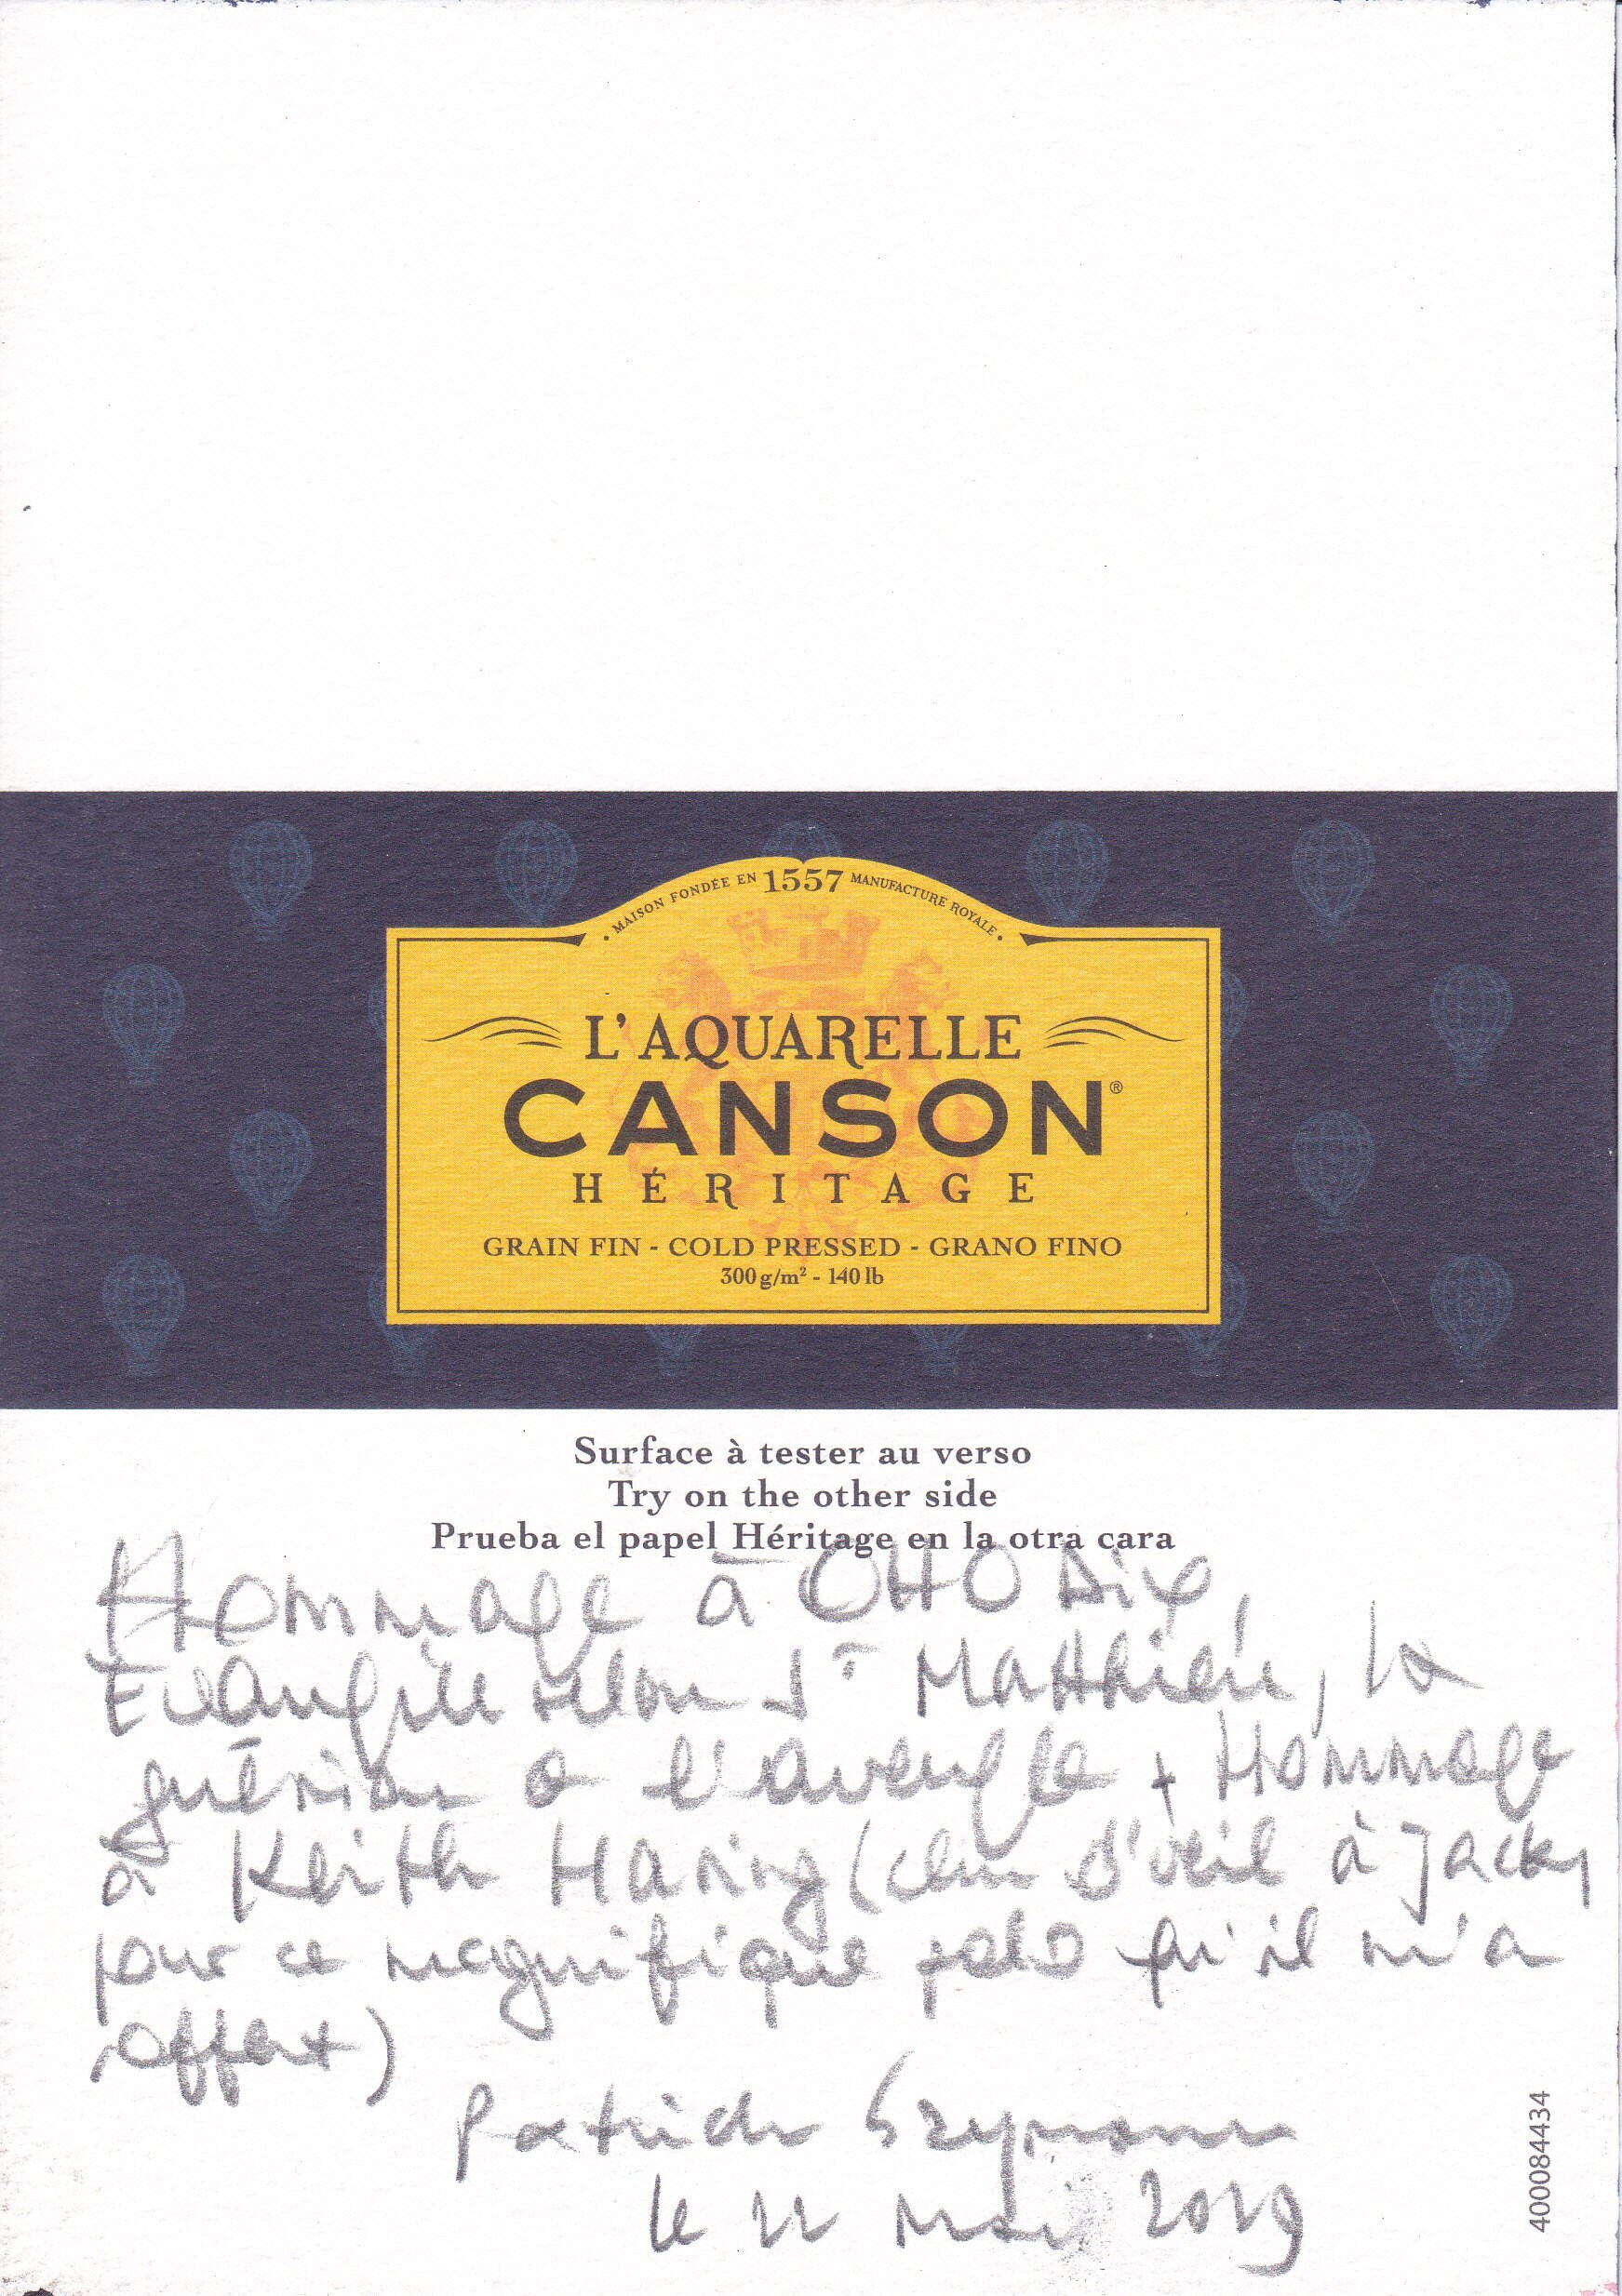 • MAISON FONDÉE EN 1557 MANUFACTURE ROYALE •
L'AQUARELLE
CANSON®
HÉRITAGE
GRAIN FIN - COLD PRESSED - GRANO FINO
300 g/m² - 140 lb
Surface à tester au verso
Try on the other side
Prueba el papel Héritage en la otra cara
Hommage à OTTO Dix,
Evangile selon St Matthieu, la
guérison de l'aveugle + Hommage
à Keith Haring (clin d'œil à Jacky
pour ce magnifique polo qu'il m'a
offert)
Patrick
le mai 2019
400084434